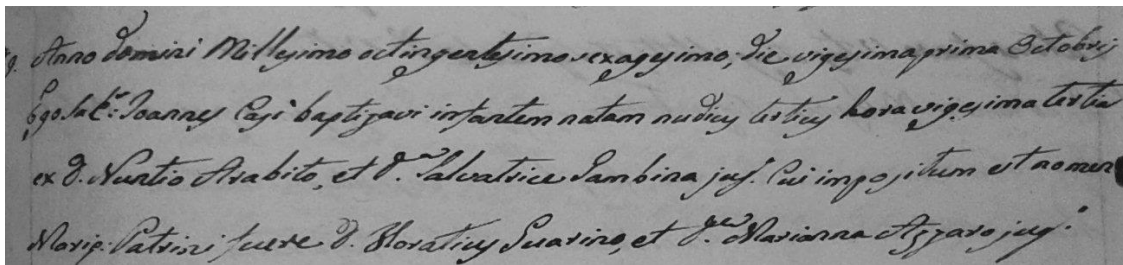 Anno Domini Millesimo octingentesimo sexagesimo, die vigesima prima Octobris
Ego Sac.s Joannes Casi baptizavi infantem natam nudius tertius hora vigesima tertia
ex D. Nuntio Arabito, et D.a Salvatrice Gambina jug. Cui impositum est nomen
Patrini fuere D. Horatius Guarino, et D.a Marianna Azzaro jug.s